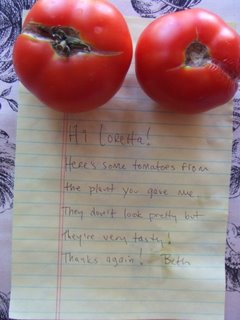 Hi Loretta!
Here's some tomatoes from
the plant you gave me.
They don't look pretty but
they're very tasty!
Thanks again! Beth